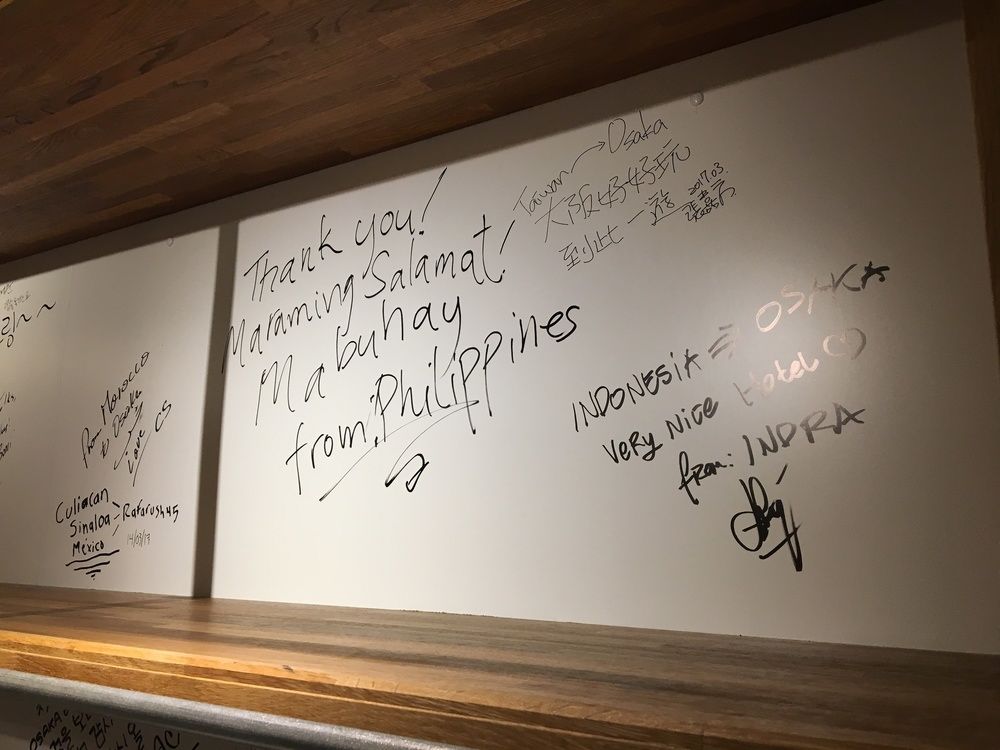 Thank you!
Maraming Salamat!
Mabuhay
from: Philippines
Taiwan → Osaka
大阪好好玩
至此一遊
2017.03.
INDONESIA ⇒ OSAKA
Very Nice Hotel ♡
from: INDRA
From Morocco
to Osaka
Love CS
Culiacan
Sinaloa
México
Rafarush45
14/03/17
링~~
OSAKA
AC